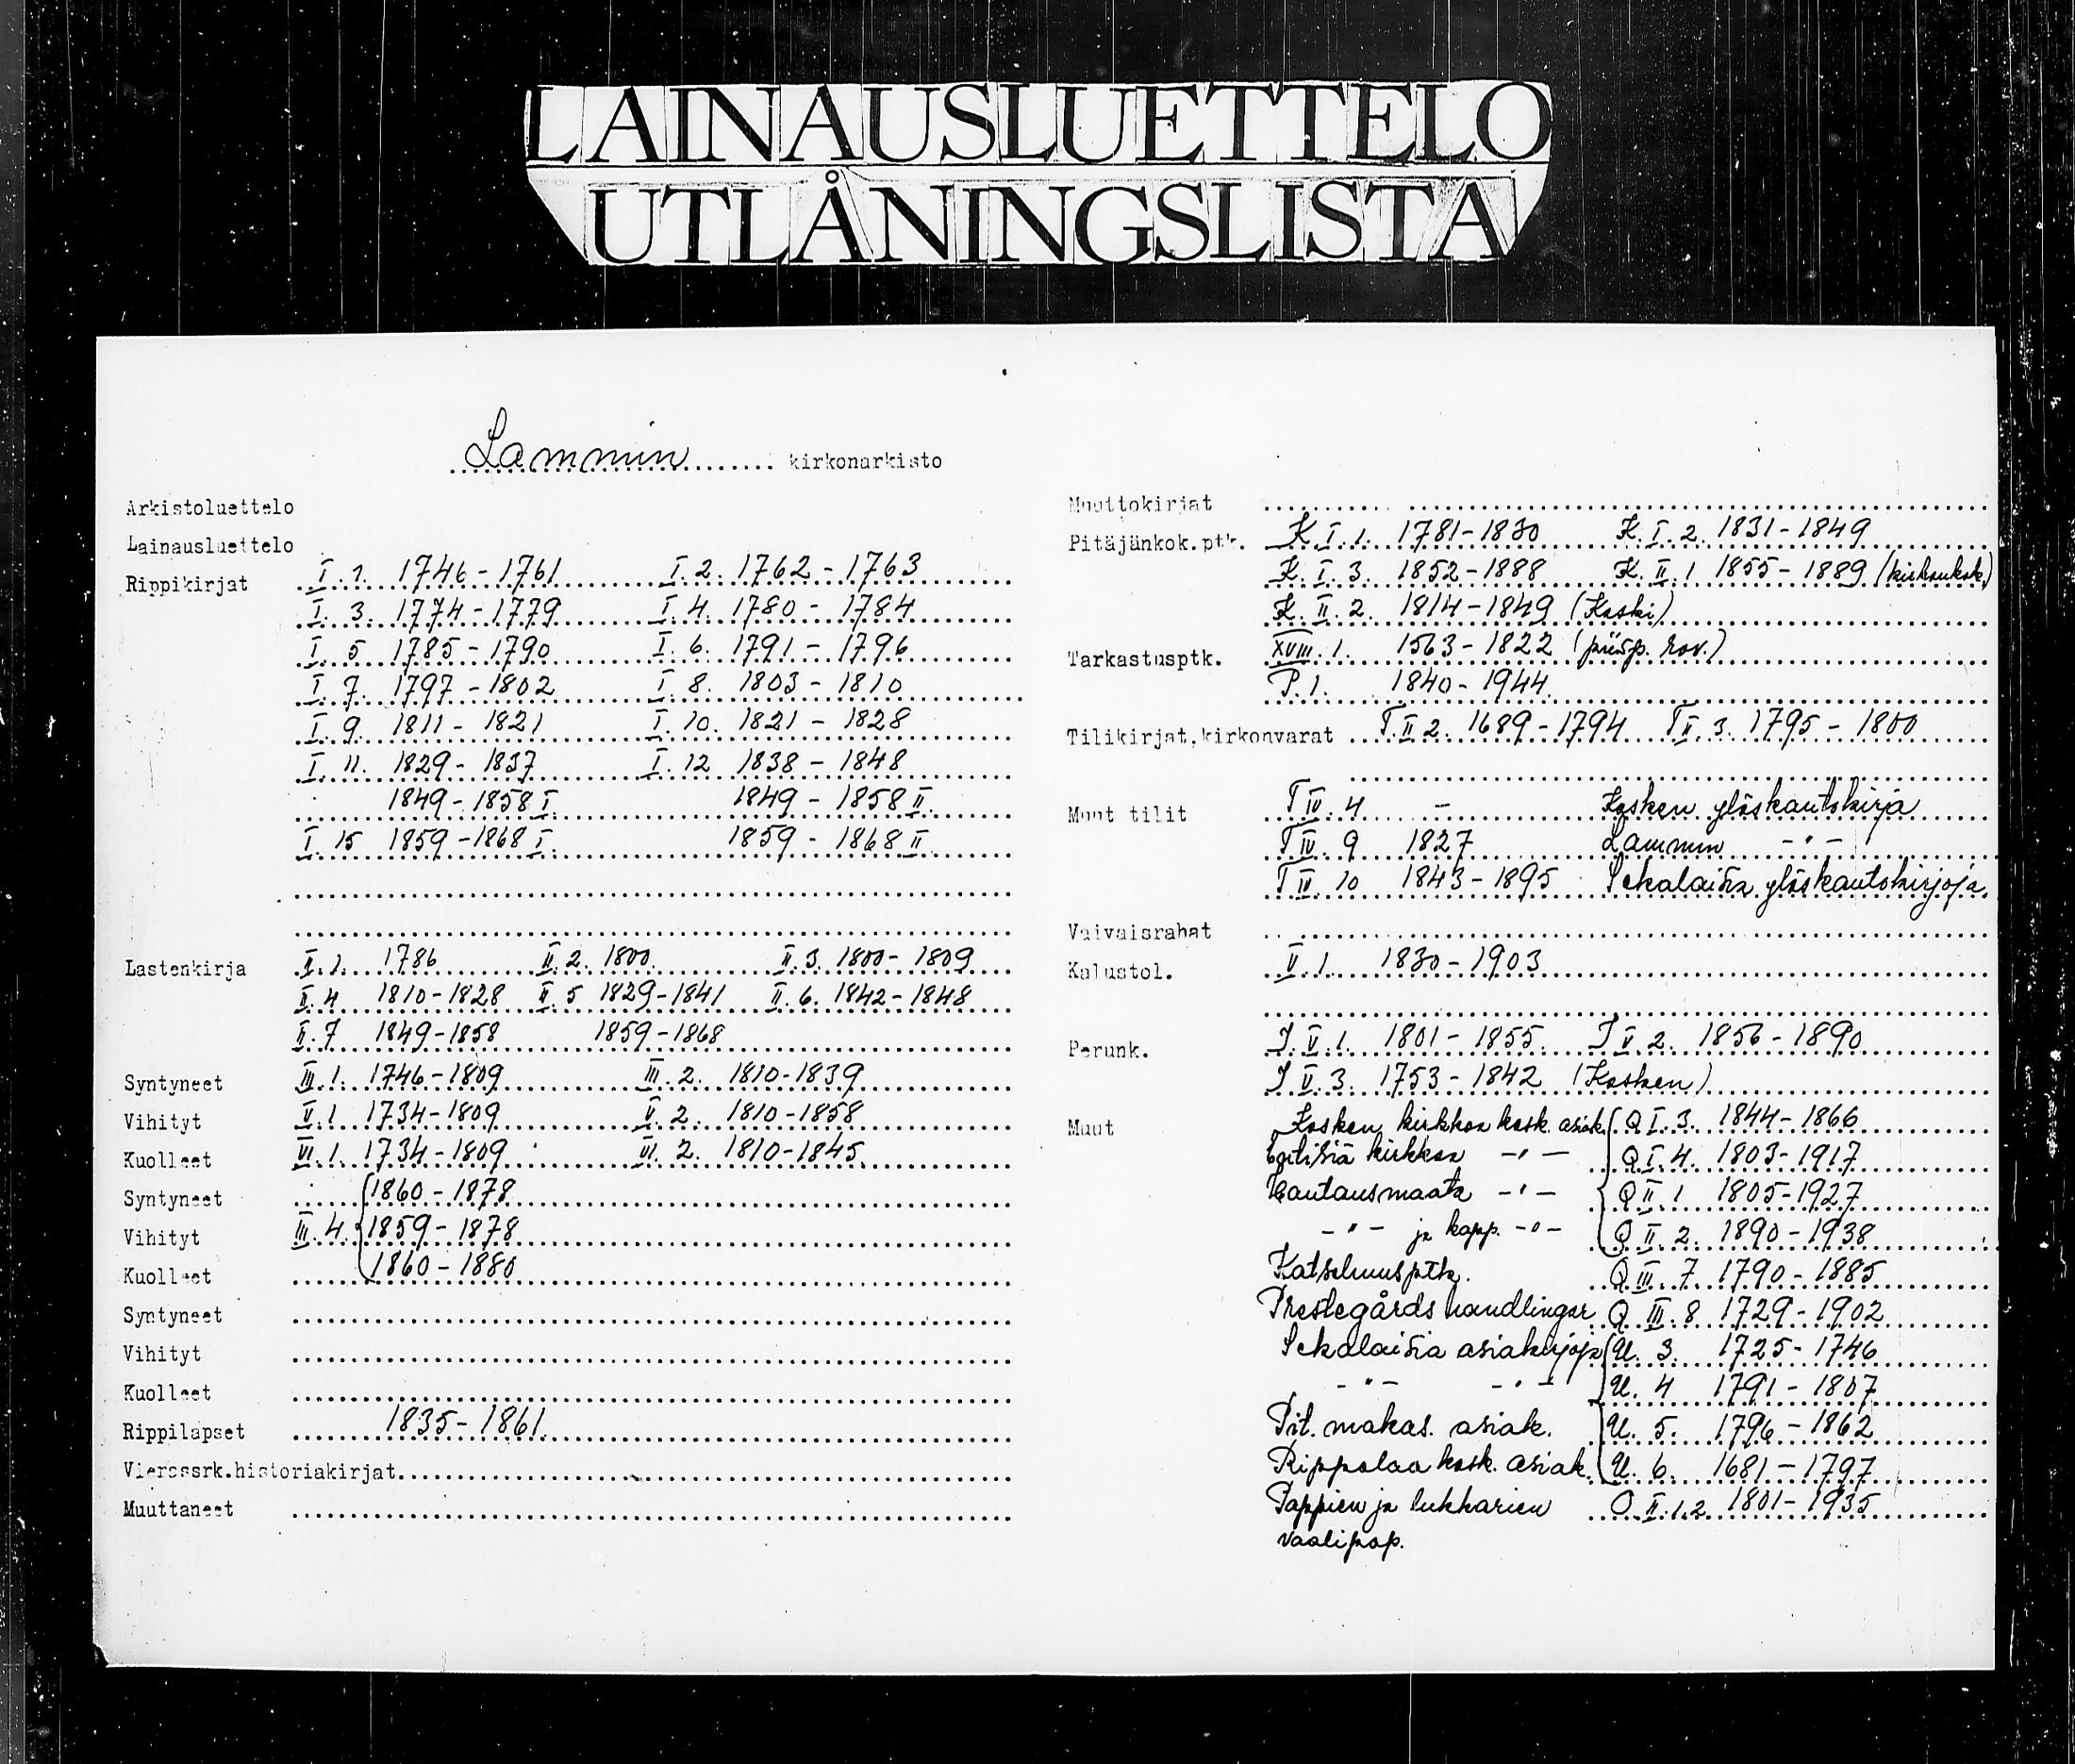 LAINAUSLUETTELO
UTLÅNINGSLISTA
Lammin kirkonarkisto
Arkistoluettelo
Lainausluettelo
Rippikirjat I. 1. 1746-1761 I. 2. 1762-1763
I. 3. 1774-1779 I. 4. 1780-1784
I. 5 1785-1790 I. 6. 1791-1796
I. 7. 1797-1802 I. 8. 1803-1810
I. 9. 1811-1821 I. 10. 1821-1828
I. 11. 1829-1837 I. 12 1838-1848
1849-1858 I. 1849-1858 II.
I. 15 1859-1868 I. 1859-1868 II.
Lastenkirja II. 1. 1786 II. 2. 1800. II. 3. 1800-1809
II. 4 1810-1828 II. 5 1829-1841 II. 6. 1842-1848
II. 7 1849-1858 1859-1868
Syntyneet III. 1. 1746-1809 III. 2. 1810-1839
Vihityt V. 1 1734-1809 V. 2. 1810-1858
Kuolleet VI. 1. 1734-1809 VI. 2. 1810-1845
Syntyneet 1860-1878
Vihityt III. 4. 1859-1878
Kuolleet 1860-1880
Syntyneet
Vihityt
Kuolleet
Rippilapset 1835-1861
historiakirjat
Muuttaneet
Muuttokirjat
Pitäjänkok.ptk. K. I. 1. 1781-1830 K. I. 2. 1831-1849
K. I. 3. 1852-1888 K. II. 1 1855-1889 (kirkonkok.)
K. II. 2. 1814-1849 (Koski)
Tarkastusptk. XVIII. 1. 1563-1822 (piisp. rov.)
P. 1. 1840-1944.
Tilikirjat,kirkonvarat T. II 2. 1689-1794 T II. 3. 1795-1800
Muut tilit T IV. 4 - Kosken ylöskantokirja
T IV. 9 1827 Lammin -"-
T IV. 10 1843-1895 Sekalaisia ylöskantokirjoja.
Vaivaisrahat
Kalustol. V. 1. 1830-1903
Perunk. J. V. 1. 1801-1855. J V. 2. 1856-1890
J V. 3. 1753-1842 (Kosken)
Muut Kosken kirkkoa kosk. asiak. Q I. 3. 1844-1866
Entisiä kirkkoa -"- Q I. 4. 1803-1917
Hautausmaata -"- Q II. 1 1805-1927
-"- ja kapp. -"- Q II. 2. 1890-1938
Katselmusptk. Q III. 7 1790-1885
Prestegårds handlingar Q III. 8 1729-1902
Sekalaisia asiakirjoja U. 3. 1725-1746
-"- -"- U. 4 1791-1807
Pit. makas. asiak. U. 5. 1796-1862
Rippolaa kosk. asiak. U. 6. 1681-1797
Pappien ja lukkarien O. II. 1.2. 1801-1935
vaalipap.